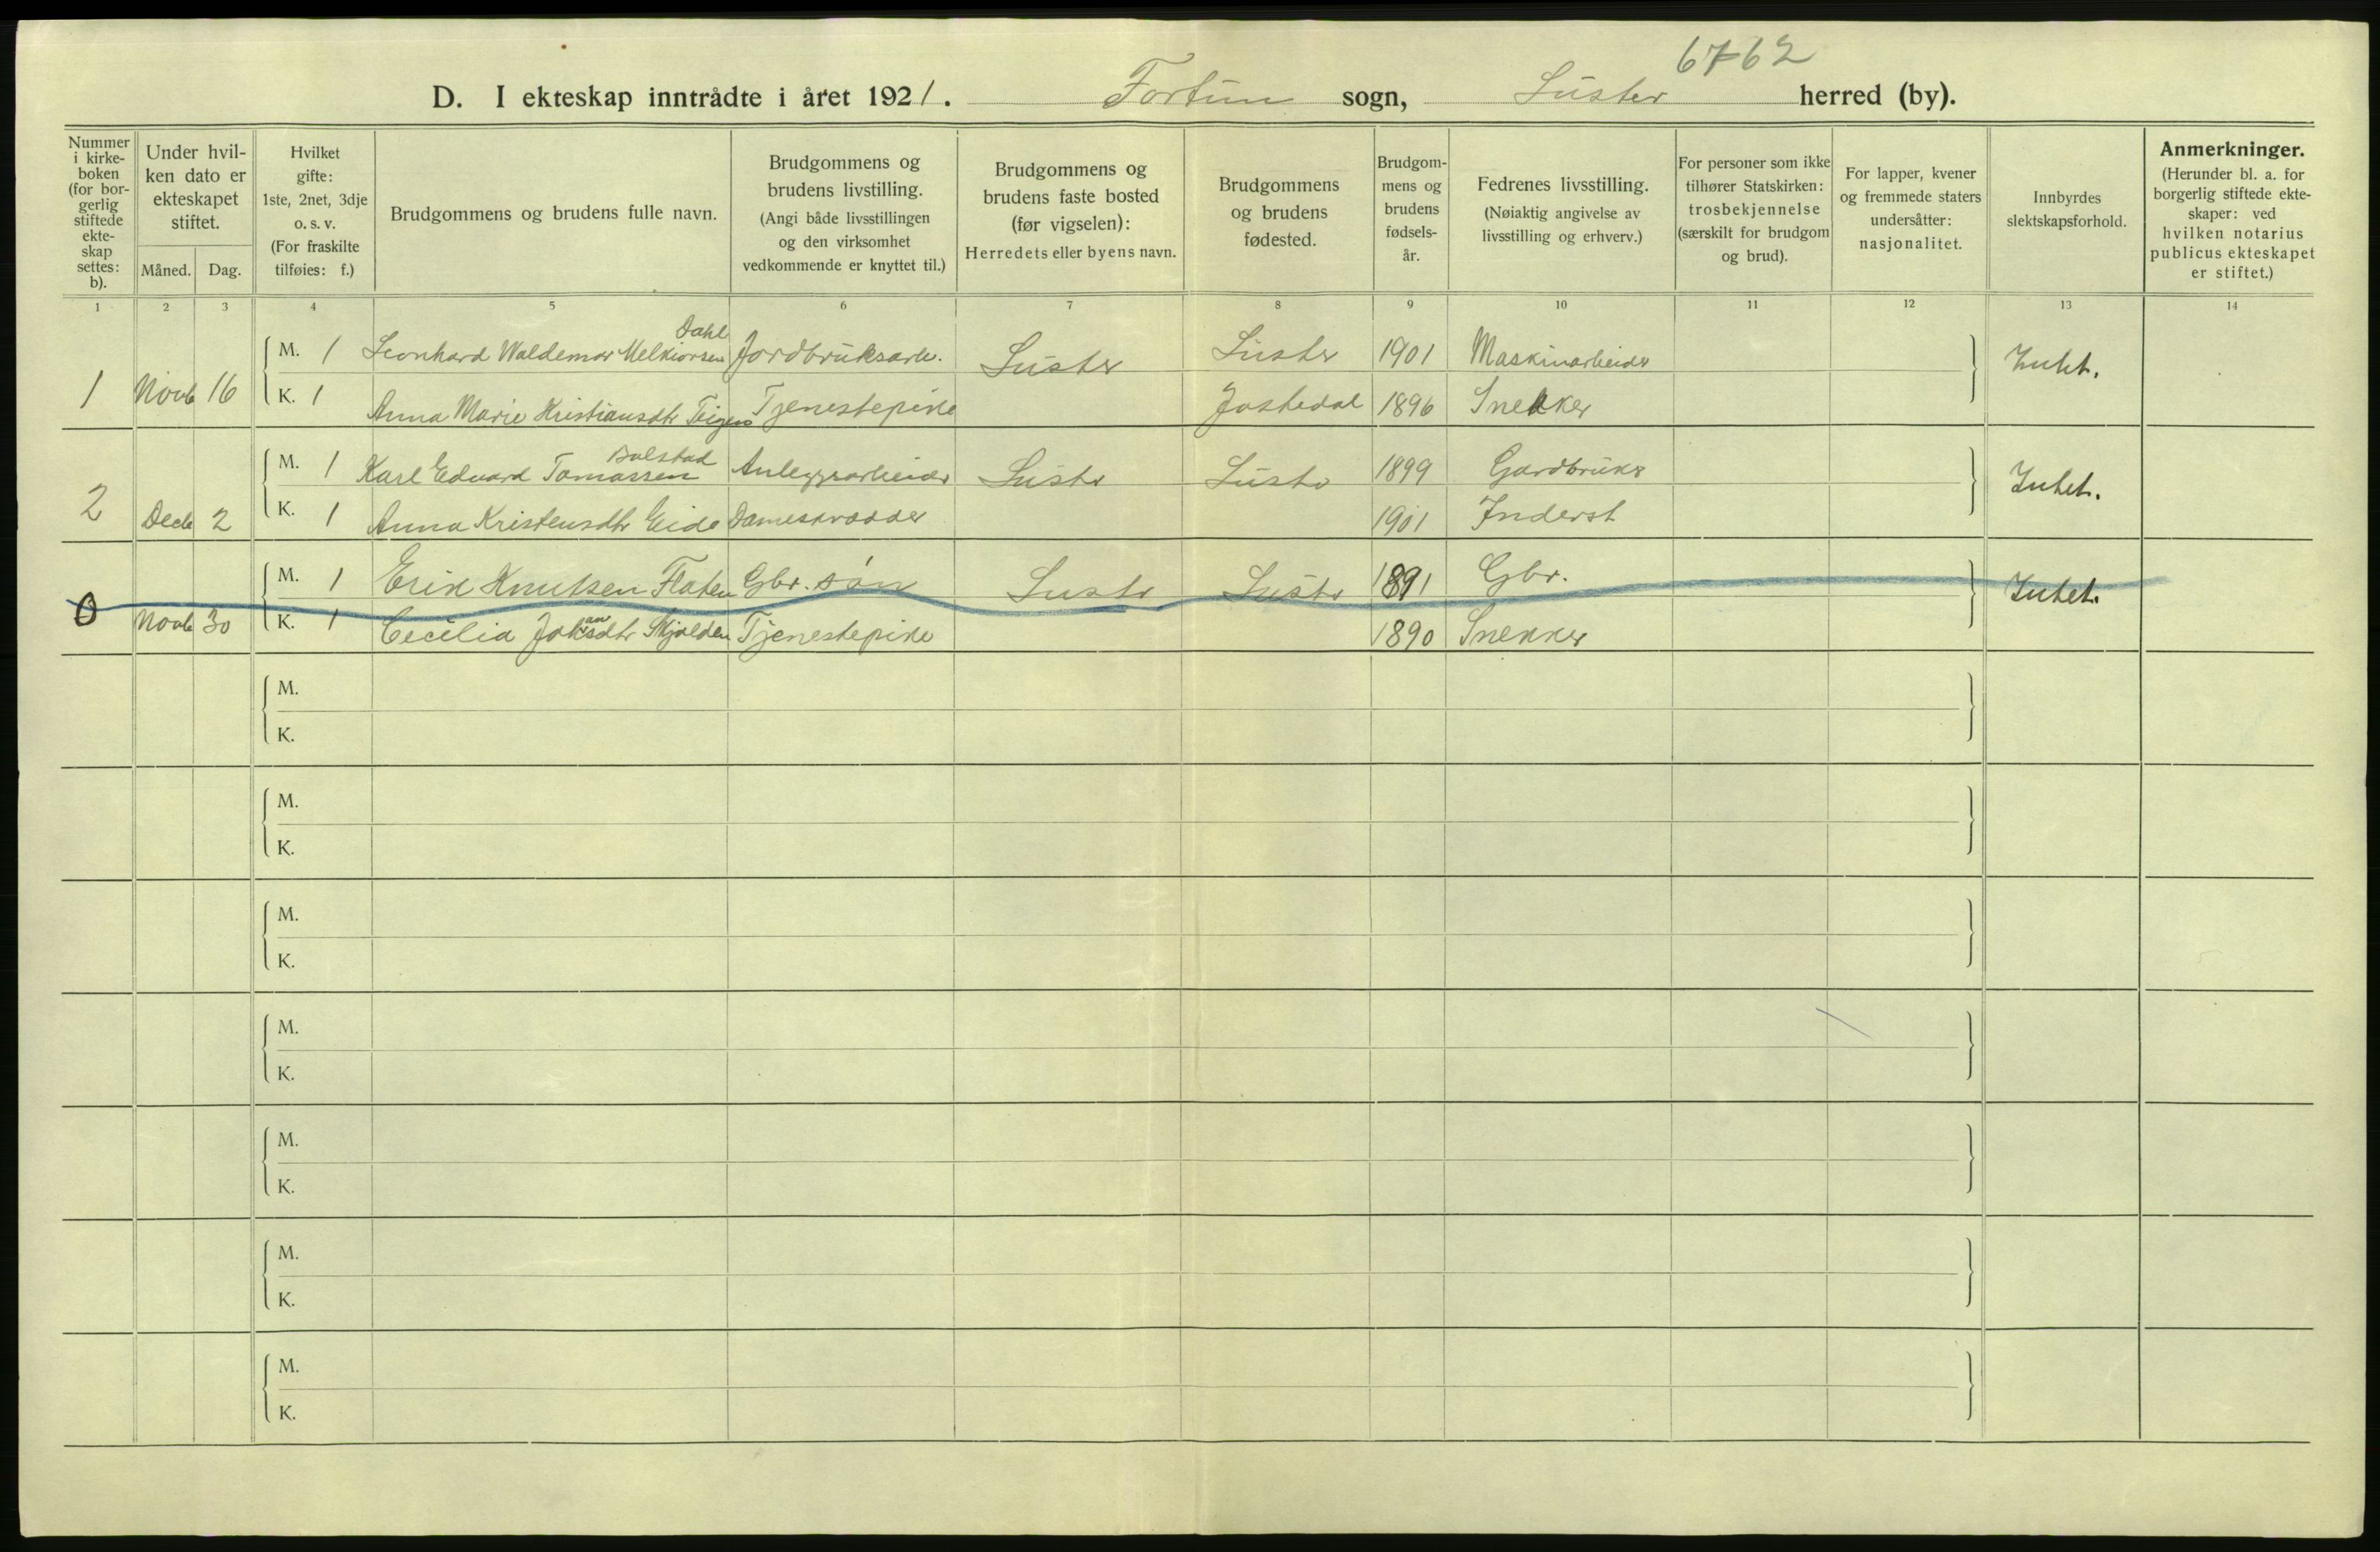 6762
D. I ekteskap inntrådte i året 1921. Fortun sogn, Luster herred (by).
Nummer i kirke-boken (for bor-gerlig stiftede ekte-skap settes: b).
Under hvil-ken dato er ekteskapet stiftet.
Måned. Dag.
Hvilket gifte: 1ste, 2net, 3dje o. s. v. (For fraskilte tilføies: f.)
Brudgommens og brudens fulle navn.
Brudgommens og brudens livstilling. (Angi både livsstillingen og den virksomhet vedkommende er knyttet til.)
Brudgommens og brudens faste bosted (før vigselen): Herredets eller byens navn.
Brudgommens og brudens fødested.
Brudgom-mens og brudens fødsels-år.
Fedrenes livsstilling. (Nøiaktig angivelse av livsstilling og erhverv.)
For personer som ikke tilhører Statskirken: trosbekjennelse (særskilt for brudgom og brud).
For lapper, kvener og fremmede staters undersåtter: nasjonalitet.
Innbyrdes slektskapsforhold.
Anmerkninger. (Herunder bl. a. for borgerlig stiftede ekte-skaper: ved hvilken notarius publicus ekteskapet er stiftet.)
1 2 3 4 5 6 7 8 9 10 11 12 13 14
Dahl
M. 1 Leonhard Waldemar Melkiorsen Jordbruksarb. Luster Luster 1901 Maskinarbeider Intet.
1 Novb 16 K. 1 Anna Marie Kristiansdtr Teigen Tjenestepike Jostedal 1896 Snekker
Bolstad
M. 1 Karl Edvard Tomassen Anleggsarbeider Luster Luster 1899 Gardbruker Intet.
2 Decb 2 K. 1 Anna Kristensdtr Eide Dameskrædder 1901 Inderst
M. 1 Erik Knutsen Flaten Gbr. søn Luster Luster 1891 Gbr. Intet.
0 Novb 30 K. 1 Cecilia Johansdtr Skjolden Tjenestepike 1890 Snekker
M.
K.
M.
K.
M.
K.
M.
K.
M.
K.
M.
K.
M.
K.